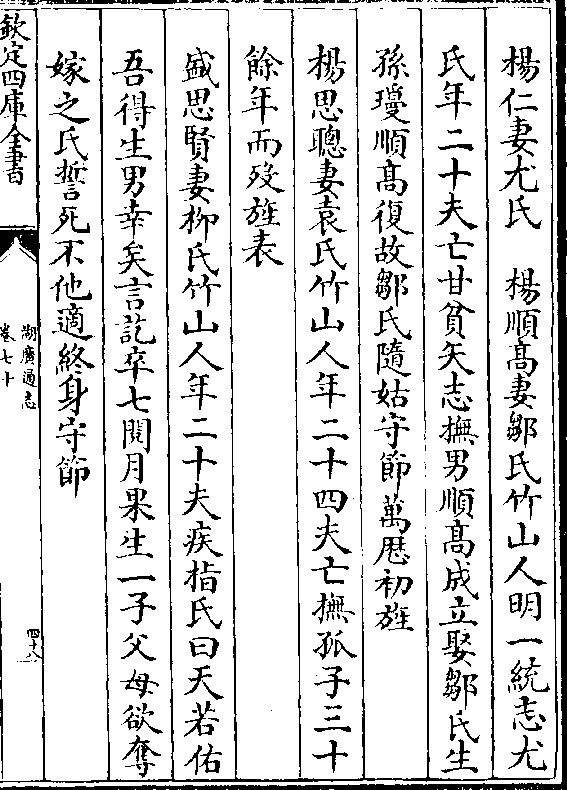 楊仁妻尤氏　楊順髙妻鄒氏竹山人明一統志尤
氏年二十夫亡甘貧矢志撫男順髙成立娶鄒氏生
孫瓊順髙復故鄒氏隨姑守節萬厯初旌
楊思聰妻袁氏竹山人年二十四夫亡撫孤子三十
餘年而歿旌表
盛思賢妻柳氏竹山人年二十夫疾指氏曰天若佑
吾得生男幸矣言訖卒七閱月果生一子父母欲奪
嫁之氏誓死不他適終身守節
欽定四庫全書
湖廣通志
卷七十
四十八